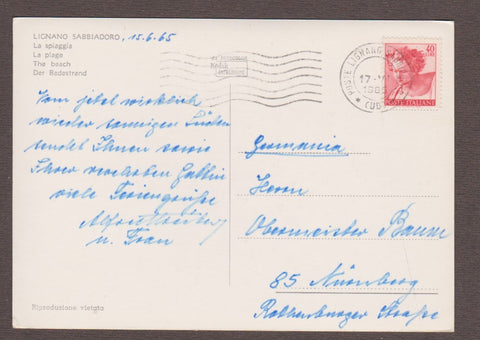 LIGNANO SABBIADORO, 15.6.65
La spiaggia
La plage
The beach
Der Badestrand
Vom jetzt wirklich
wieder sonnigen Süden
sendet Ihnen sowie
Ihrer werten Gattin
viele Feriengrüße
Alfred
u. Frau
Riproduzione vietata
Kodak
POSTE LIGNANO
17-VI
1965
(UD)
40
POSTE ITALIANE
Germania
Herrn
Obermeister Baum
85 Nürnberg
Rothenburger Straße